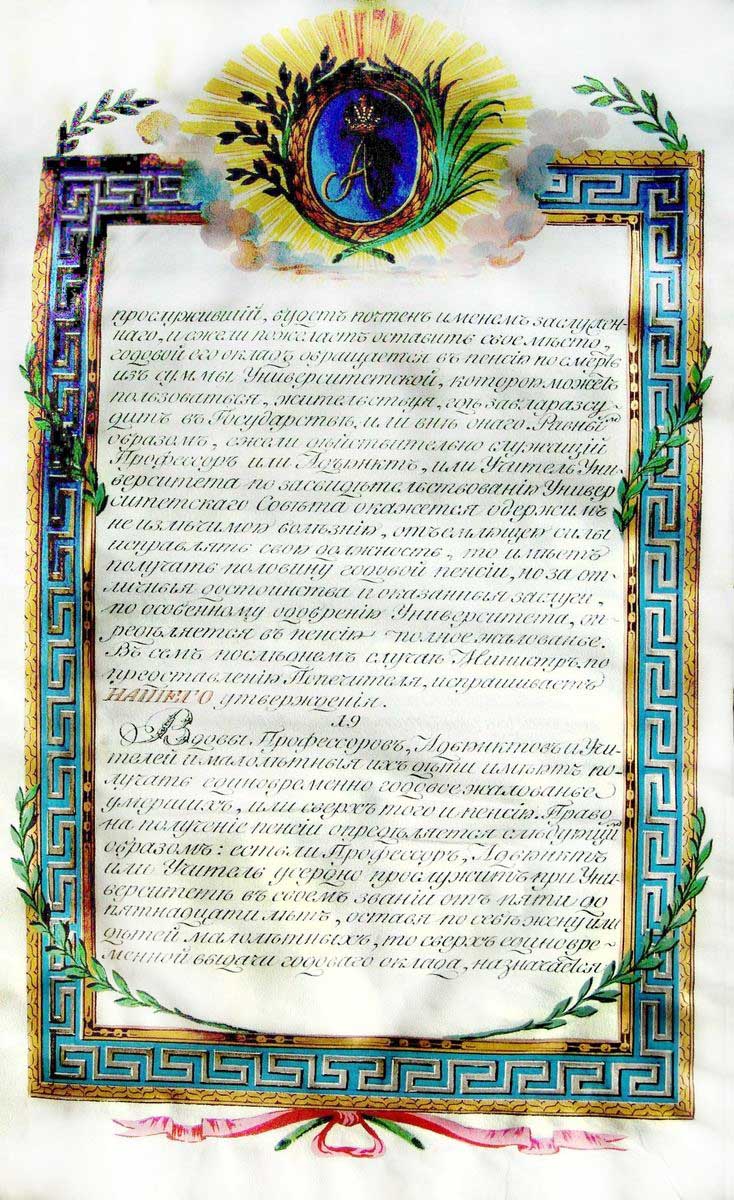 А
прослужившій, будетъ почтенъ именемъ заслужен-
наго, и ежели пожелаетъ оставить свое мѣсто,
годовой его окладъ обращается въ пенсію по смерть
изъ суммы Университетской, которою можетъ
пользоваться, жительствуя, гдѣ заблагоразсу-
дитъ въ Государствѣ, или внѣ онаго. Равнымъ
образомъ, ежели дѣйствительно служащій
Профессоръ или Адъюнктъ, или Учитель Уни-
верситета по засвидѣтельствованію Универ
ситетскаго Совѣта окажется одержимъ
не излѣчимою болѣзнію, отъемлющею силы
исправлять свою должность, то имѣетъ
получать половину годовой пенсіи, но за от-
личныя достоинства и оказанныя заслуги,
по особенному одобренію Университета, оп-
редѣляется въ пенсію полное жалованье.
Въ семъ послѣднемъ случаѣ Министръ, по
представленію Попечителя, испрашиваетъ
НАШЕГО утвержденія.
19
Вдовы Профессоровъ, Адъюнктовъ и Учи-
телей и малолѣтныя ихъ дѣти имѣютъ по-
лучать единовременно годовое жалованье
умершихъ, или сверхъ того и пенсію. Право
на полученіе пенсіи опредѣляется слѣдующимъ
образомъ: естьли Профессоръ, Адъюнктъ
или Учитель усердно прослужитъ при Уни-
верситетѣ въ своемъ званіи от пяти до
пятнадцати лѣтъ, оставя по себѣ жену или
дѣтей малолѣтныхъ, то сверхъ единовре-
менной выдачи годоваго оклада, назначается